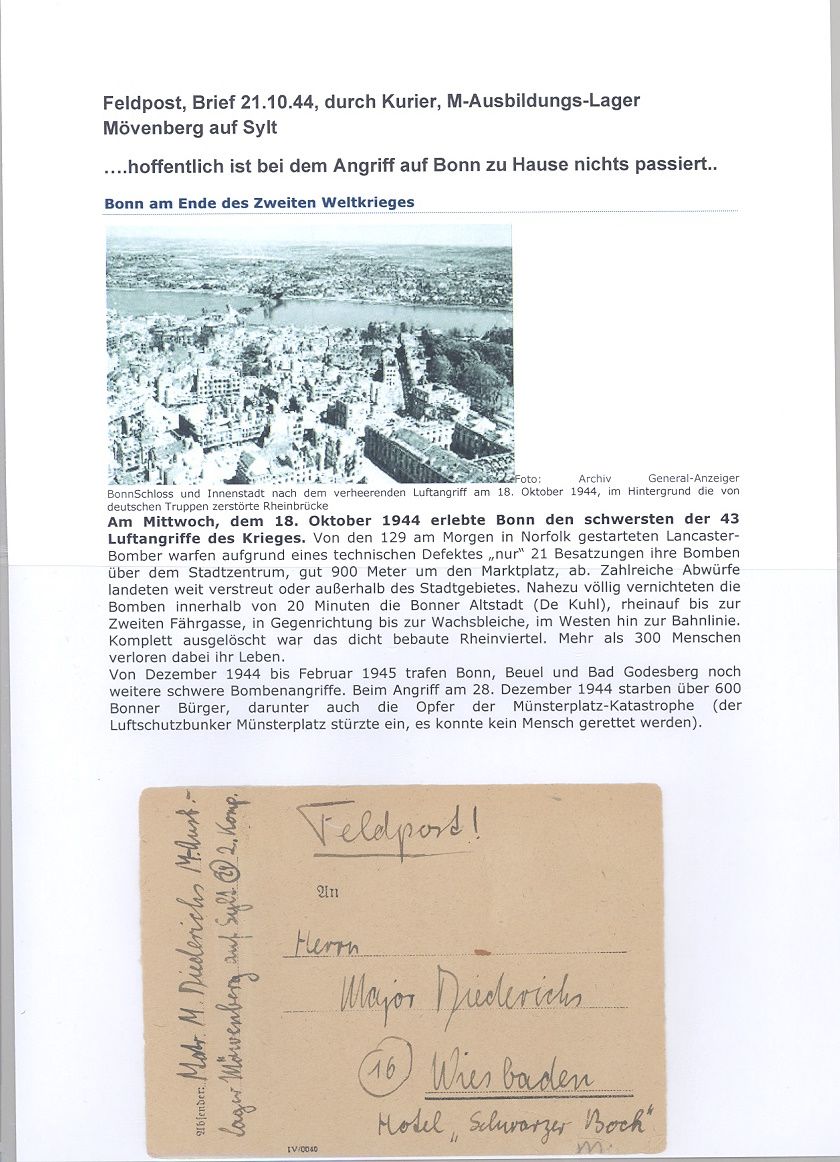 Feldpost, Brief 21.10.44, durch Kurier, M-Ausbildungs-Lager
Mövenberg auf Sylt
….hoffentlich ist bei dem Angriff auf Bonn zu Hause nichts passiert..
Bonn am Ende des Zweiten Weltkrieges
Foto: Archiv General-Anzeiger
BonnSchloss und Innenstadt nach dem verheerenden Luftangriff am 18. Oktober 1944, im Hintergrund die von
deutschen Truppen zerstörte Rheinbrücke
Am Mittwoch, dem 18. Oktober 1944 erlebte Bonn den schwersten der 43
Luftangriffe des Krieges. Von den 129 am Morgen in Norfolk gestarteten Lancaster-
Bomber warfen aufgrund eines technischen Defektes „nur" 21 Besatzungen ihre Bomben
über dem Stadtzentrum, gut 900 Meter um den Marktplatz, ab. Zahlreiche Abwürfe
landeten weit verstreut oder außerhalb des Stadtgebietes. Nahezu völlig vernichteten die
Bomben innerhalb von 20 Minuten die Bonner Altstadt (De Kuhl), rheinauf bis zur
Zweiten Fährgasse, in Gegenrichtung bis zur Wachsbleiche, im Westen hin zur Bahnlinie.
Komplett ausgelöscht war das dicht bebaute Rheinviertel. Mehr als 300 Menschen
verloren dabei ihr Leben.
Von Dezember 1944 bis Februar 1945 trafen Bonn, Beuel und Bad Godesberg noch
weitere schwere Bombenangriffe. Beim Angriff am 28. Dezember 1944 starben über 600
Bonner Bürger, darunter auch die Opfer der Münsterplatz-Katastrophe (der
Luftschutzbunker Münsterplatz stürzte ein, es konnte kein Mensch gerettet werden).
Absender: Matr. M. Diederichs M.Ausb.-
lager Möwenberg auf Sylt (24) 2. Komp.
Feldpost!
An
Herrn
Major Diederichs
(16) Wiesbaden
Hotel „Schwarzer Bock"
IV/0040